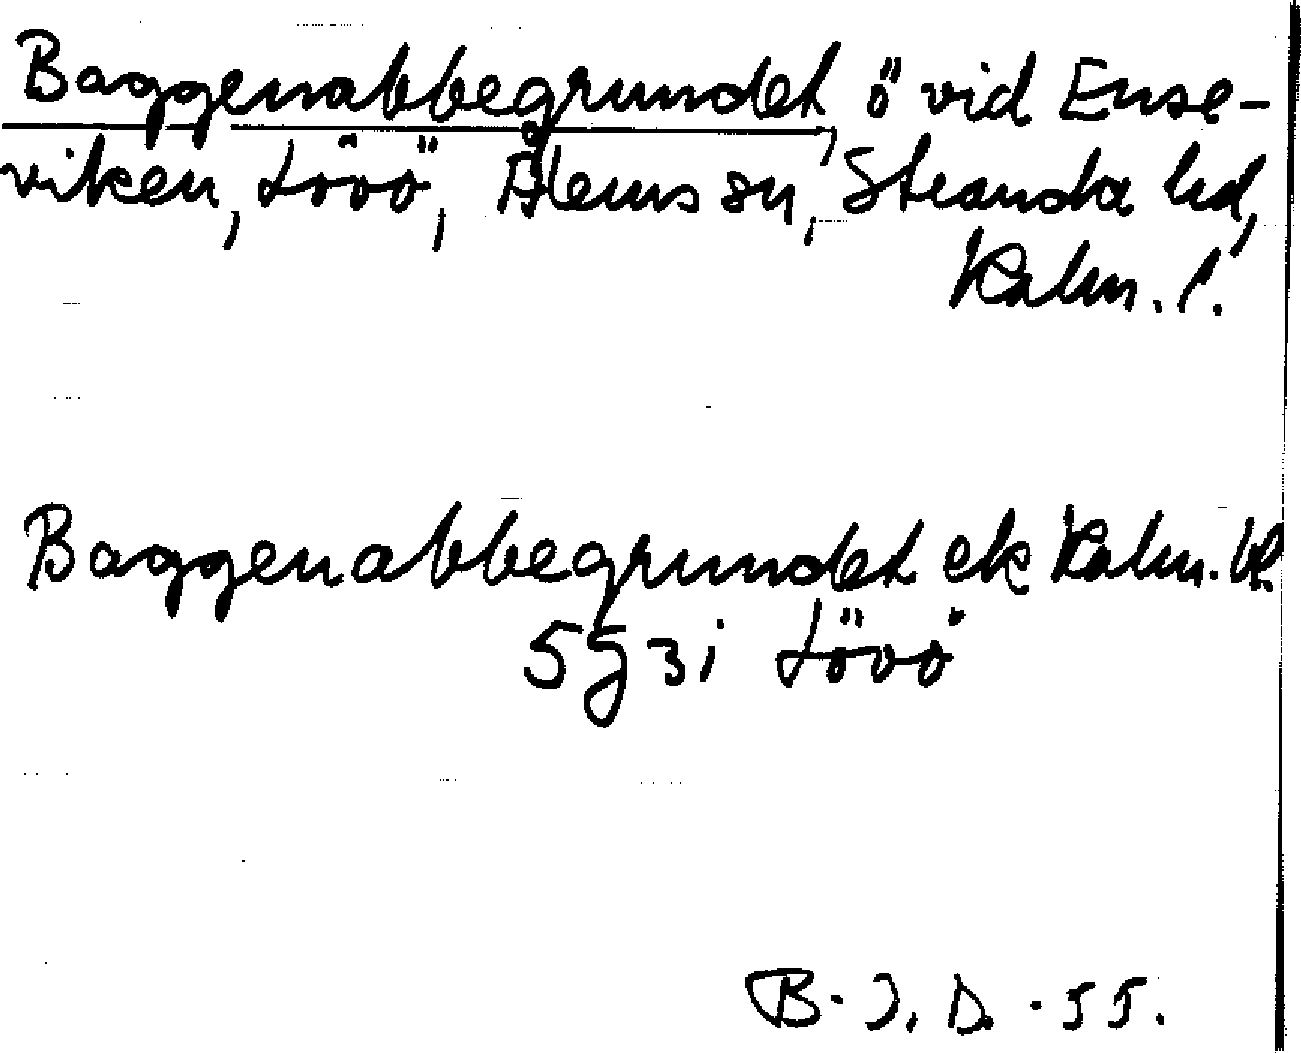 Baggenabbegrundet, ö vid Ense-
viken, Lövö, Ålems sn, Stranda hd,
Kalm. l.
Baggenabbegrundet ek Kalm. bl.
5g 3i Lövö
B-J. D. -55.